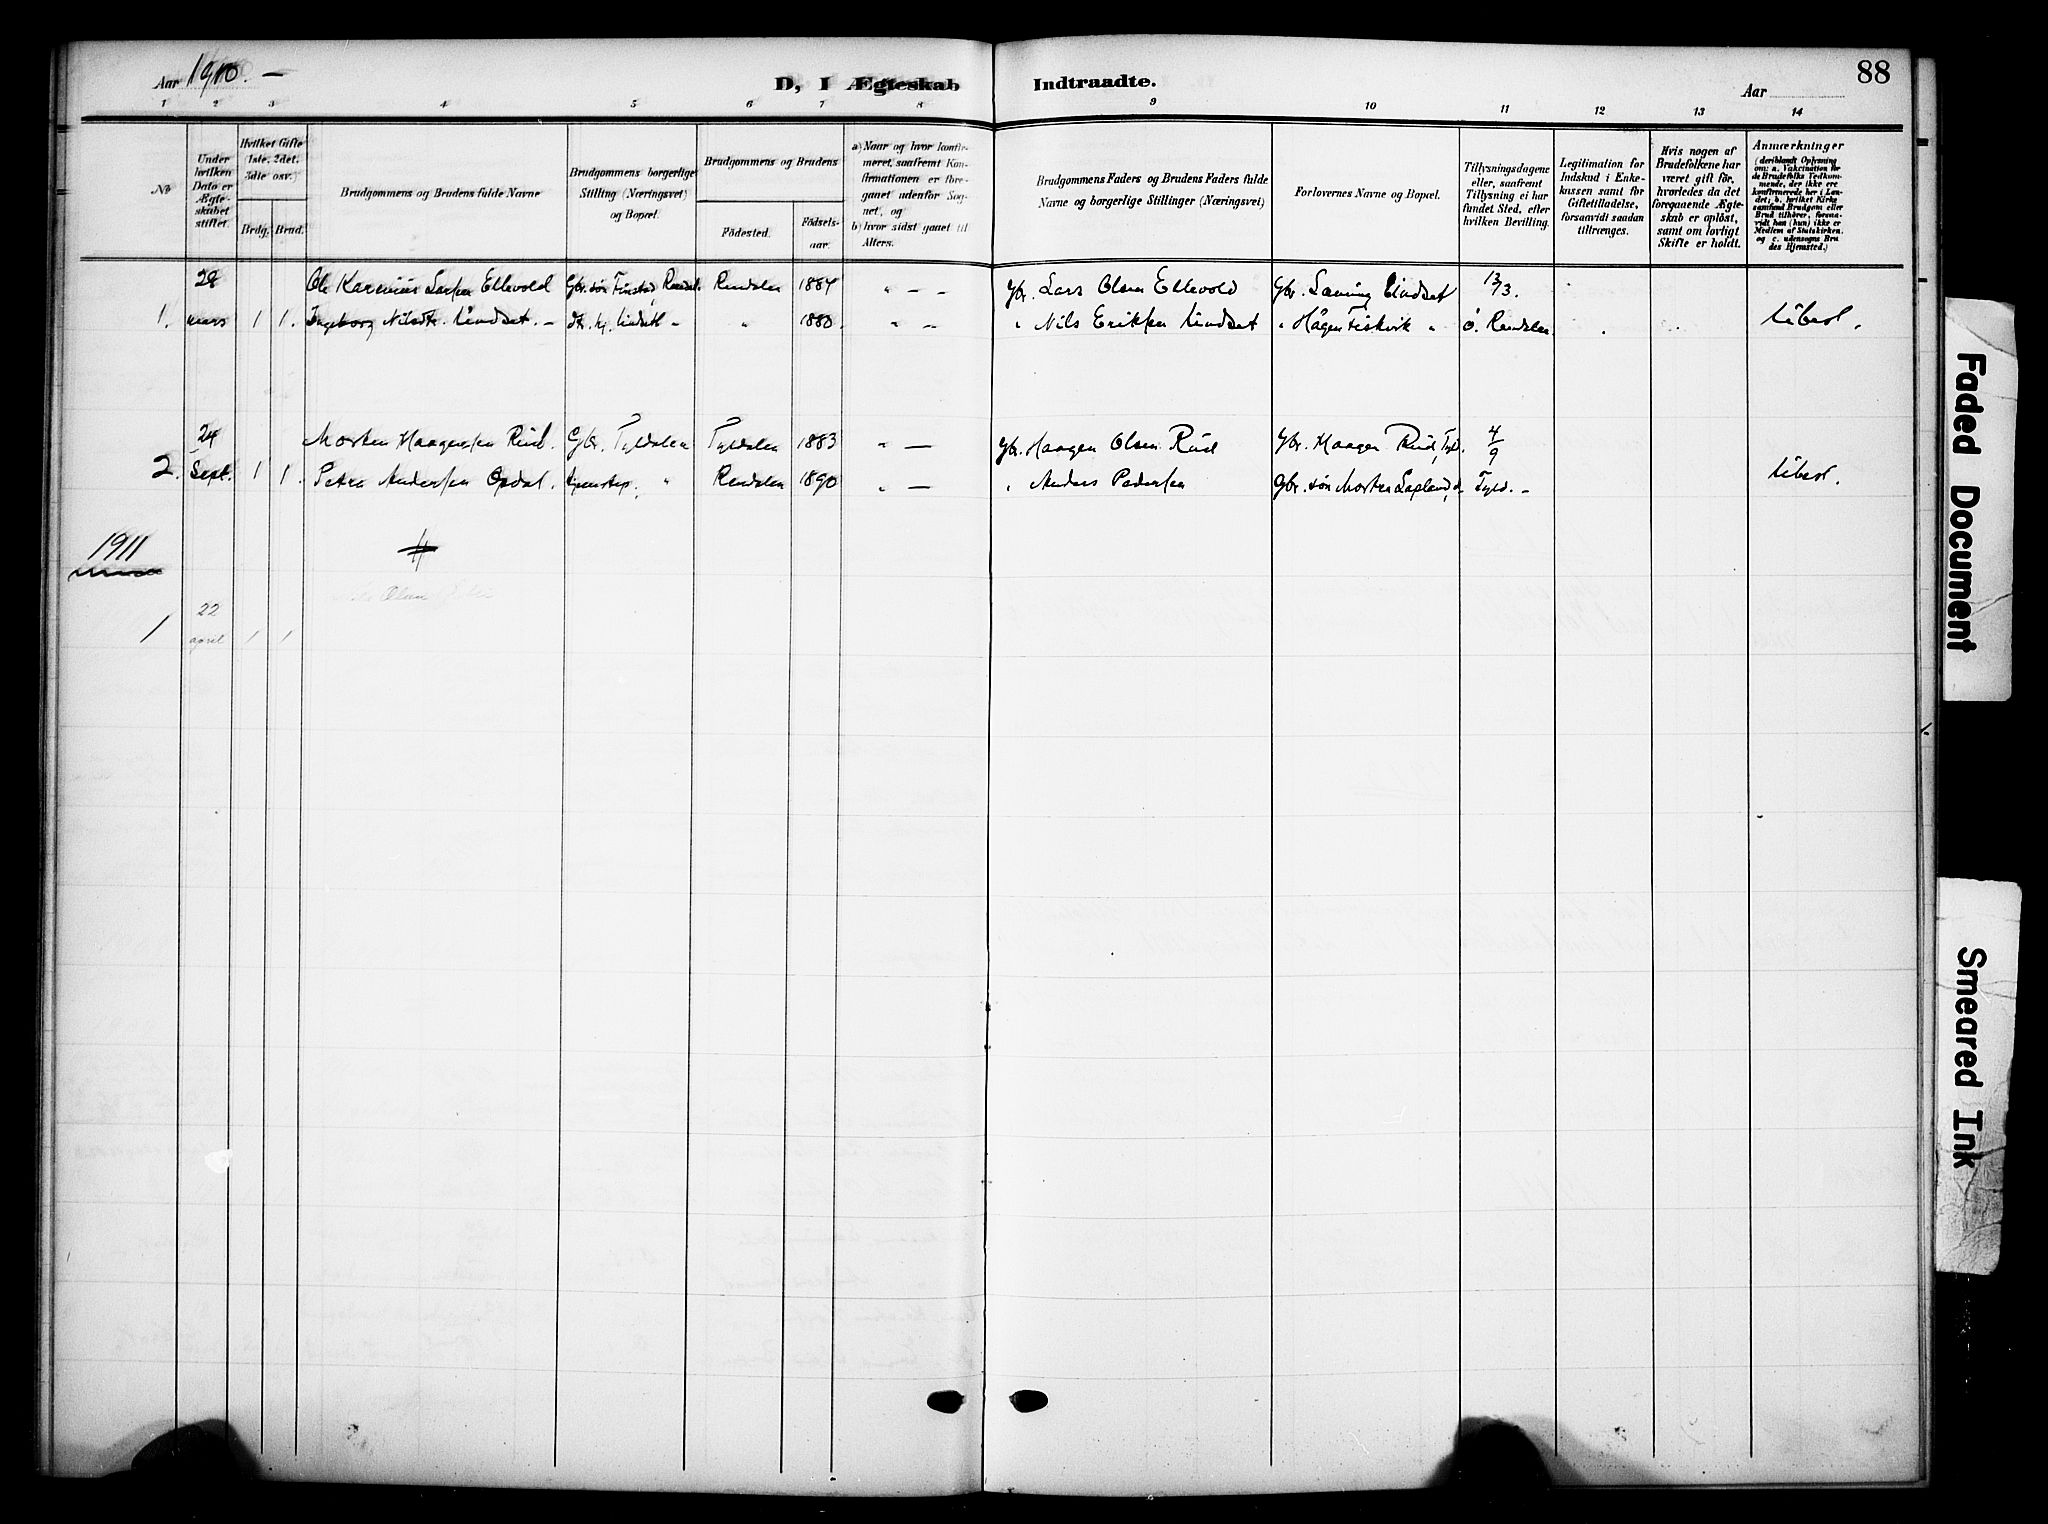 Aar 1910. —
D, I Ægteskab Indtraadte.
Aar
88
1 2 3 4 5 6 7 8 9 10 11 12 13 14
No
Under hvilken Dato er Ægteskabet stiftet.
Hvilket Gifte (1ste, 2det, 3die osv.)
Brdg. Brud.
Brudgommens og Brudens fulde Navne
Brudgommens borgerlige Stilling (Næringsvei) og Bopæl.
Brudgommens og Brudens
Fødested.
Fødselsaar.
a) Naar og hvor konfirmeret, saafremt Konfirmationen er foregaaet udenfor Sognet, og
b) hvor sidst gaaet til Alters.
Brudgommens Faders og Brudens Faders fulde Navne og borgerlige Stillinger (Næringsvei)
Forlovernes Navne og Bopæl.
Tillysningsdagene eller, saafremt Tillysning ei har fundet Sted, efter hvilken Bevilling.
Legitimation for Indskud i Enkekassen samt for Giftetilladelse, forsaavidt saadan tiltrænges.
Hvis nogen af Brudefolkene har været gift før, hvorledes da det foregaaende Ægteskab er opløst, samt om lovligt Skifte er holdt.
Anmærkninger
(deriblandt Oplysning om: a. Vakcination for de Brudefolks Vedkommende, der ikke ere konfirmerede her i Landet; b. hvilket Kirkesamfund Brudgom eller Brud tilhører, forsaavidt han (hun) ikke er Medlem af Statskirken, og c. udensogns Brudes Hjemsted.)
28 Ole Larsen Ellevold Gbr. søn Finstad, Rendal. Rendalen 1884 " — — Gbr. Lars Olsen Ellevold Gbr. Lindset 13/3.
1. mars 1 1. Ingeborg Nilsdtr. Lindset. — " 1880. " — — " Nils Eriksen Lindset " Hågen Fiskvik " ø. Rendalen
24 Morten Haagensen Rud. Gbr. Tyldalen Tyldalen 1883 " — Gbr. Haagen Olsen Rud Gbr. Haagen Rud, Tyl. 4/9
2. Sept. 1 1. Petra Andersen Opdal. " Rendalen 1890 " — " Anders Pedersen Gbr. søn Morten Tyld. —
1911
22
1 april 1 1
Olsen
Faded Document
Smeared Ink